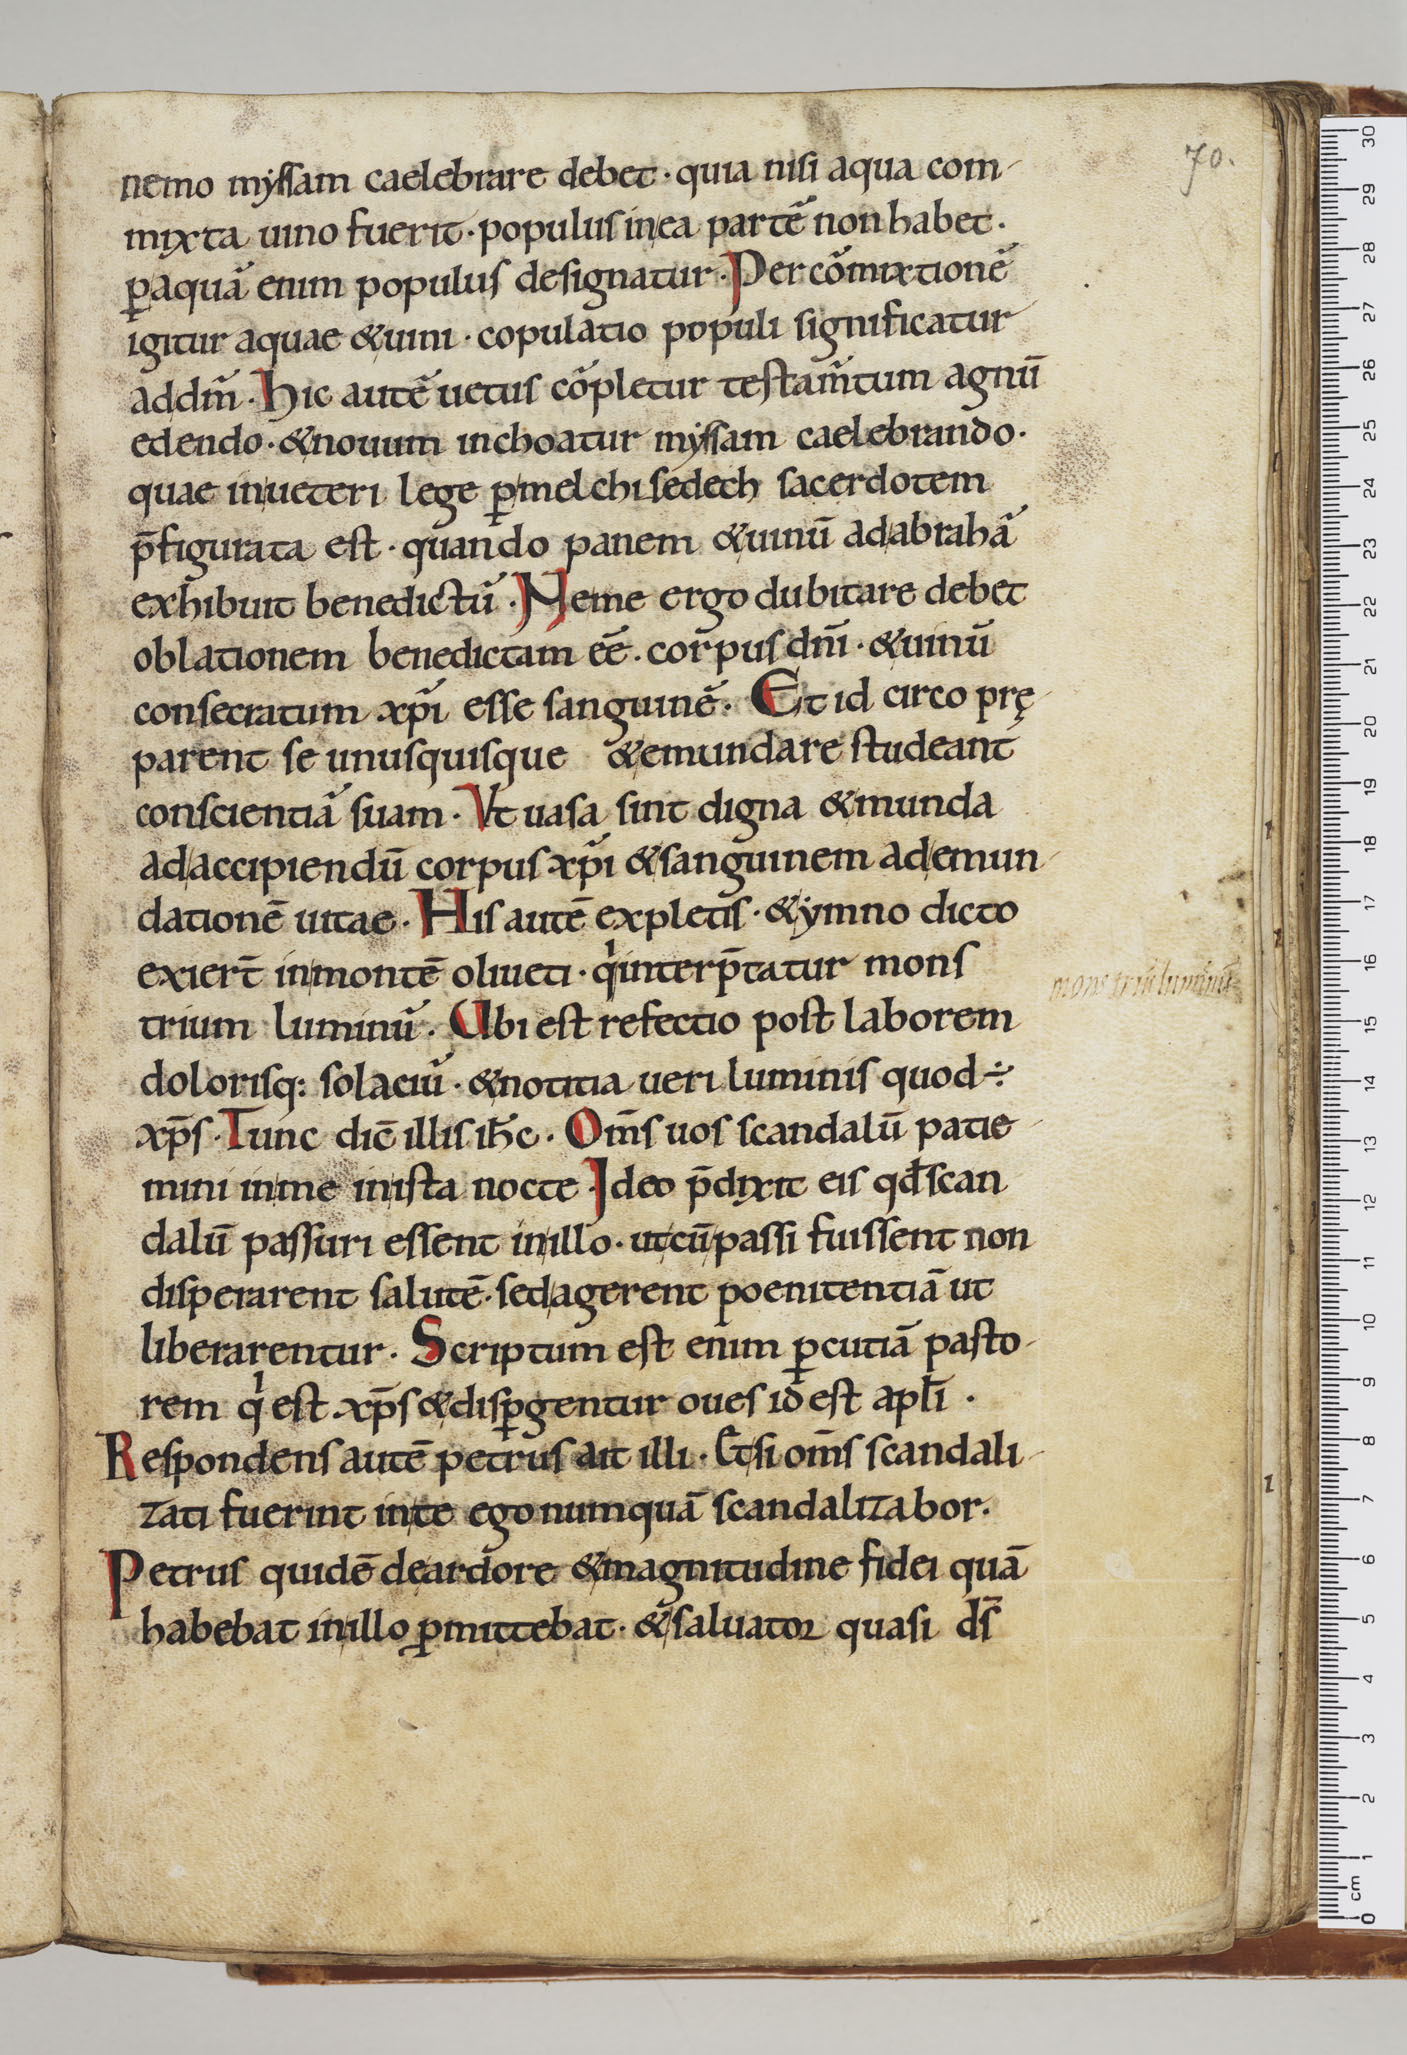 70.
nemo myssam caelebrare debet · quia nisi aqua com-
mixta uino fuerit · populus in ea partē non habet ·
p̱ aquā enim populus designatur · Per cōmixtionē
igitur aquae & uini · copulatio populi significatur
ad dm̄ · Hic autē uetus cōpletur testam̄tum agnū
edendo · & nouum inchoatur myssam caelebrando ·
quae in ueteri lege p̱ melchisedech sacerdotem
p̄figurata est · quando panem & uinū ad abrahā
exhibuit benedictū · Neme ergo dubitare debet
oblationem benedictam eē · corpus dn̄i · & uinū
consecratum xp̄i esse sanguinē · Et id circo prę-
parent se unusquisque & emundare studeant
conscientiā suam · Vt uasa sint digna & munda
ad accipiendū corpus xp̄i & sanguinem ad emun-
dationē uitae · His autē expletis · & ymno dicto
exiert̄ in montē oliueti · qⁱ interp̄tatur mons
mons triū luminū
trium luminū · Ubi est refectio post laborem
dolorisq: solaciū · & notitia ueri luminis quod ÷
xp̄s · Tunc dic̄ illis ih̄c · Om̄s uos scandalū patie-
mini in me in ista nocte · Ideo p̄dixit eis qđ scan
dalū passuri essent in illo · ut cū passi fuissent non
disperarent salutē · sed agerent poenitentiā ut
liberarentur · Scriptum est enim p̱cutiā pasto-
rem qⁱ est xp̄s & disp̱gentur oues id est apl̄i ·
Respondens autē petrus ait illi · Etsi om̄s scandali-
zati fuerint in te ego numquā scandalizabor ·
Petrus quidē de ardore & magnitudine fidei quā
habebat in illo p̱mittebat · & saluator quasi ds̄